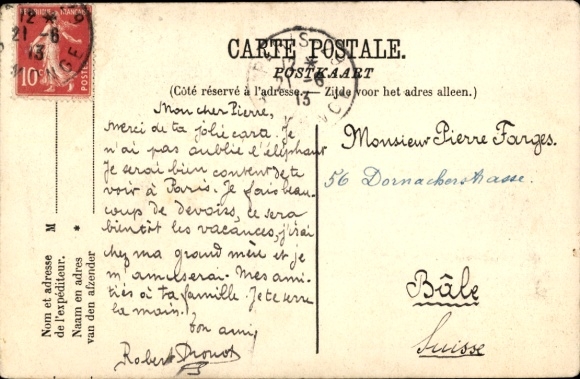 RÉPUBLIQUE FRANÇAISE
POSTES
10c
12 * 6
21 - 6
13
CARTE POSTALE.
POSTKAART
(Côté réservé à l'adresse. — Zijde voor het adres alleen.)
12 *
21 - 6
13
Mon cher Pierre,
Merci de ta jolie carte. Je
n'ai pas oublié l'éléphant
Je serai bien content de te
voir à Paris. Je fais beau-
coup de devoirs, ce sera
bientôt les vacances, j'irai
chez ma grand mère et je
m'amuserai. Mes ami-
tiés à ta famille. Je te serre
la main.
ton ami,
Robert Drouot
Monsieur Pierre Farges.
56 Dornacherstrasse.
Bâle
Suisse
Nom et adresse M
de l'expéditeur.
Naam en adres *
van den afzender